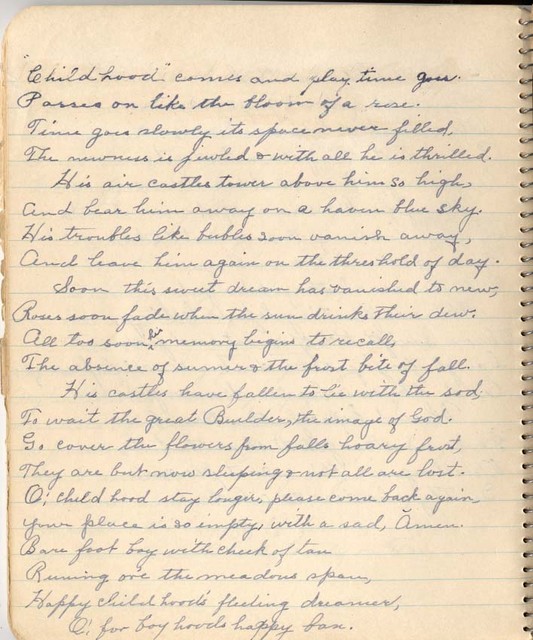 "Child hood" comes and play time goes.
Passes on like the bloom of a rose.
Time goes slowly its space never filled,
The newness is juwled & with all he is thrilled.
His air castles tower above him so high,
And bear him away on a haven blue sky.
His troubles like bubles soon vanish away,
And leave him again on the threshold of day.
Soon this sweet dream has vanished to new,
Roses soon fade when the sun drinks their dew.
All too soon his memory begins to recall,
The absence of sumer & the frost bite of fall.
His castles have fallen to lie with the sod,
To wait the great Buulder, the image of God.
Go cover the flowers from falls hoary frost,
They are but now sleeping & not all are lost.
O! Child hood stay longer, please come back again,
your place is so empty, with a sad, Amen.
Bare foot boy with cheek of tan
Runing ore the meadous span,
Happy child hoods fleeting dreamer,
O! for boy hoods happy ban.